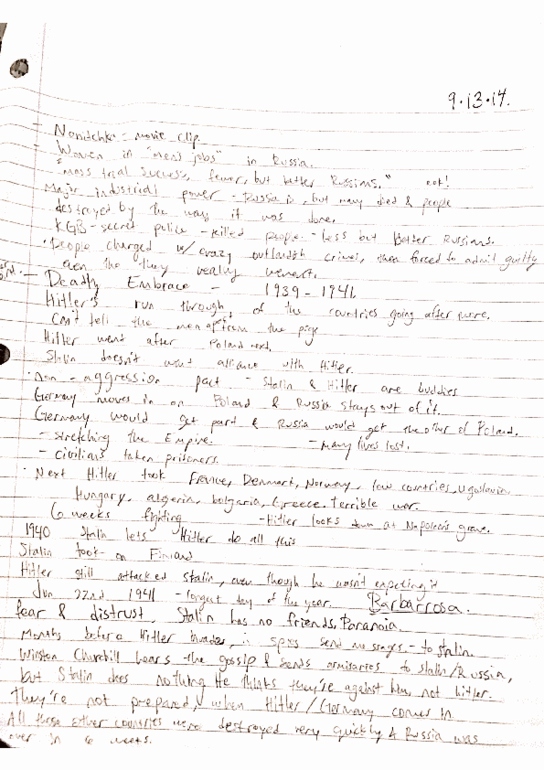 9.13.17.
Nonitchka - movie clip
Women in "mens jobs" in Russia.
"mass trial success, fewer, but better Russians."
Major industrial power - Russia is, but many died & people
destroyed by the way it was done.
KGB - secret police - killed people - less but Better Russians.
People charged w/ crazy outlandish crimes, then forced to admit guilty
even tho they really weren't.
Deadly Embrace - 1939-1941
Hitler's run through of the countries going after
Can't tell the men from the pigs
Hitler went after Poland next.
Stalin doesn't want alliance with Hitler.
Non-aggression pact - Stalin & Hitler are buddies
Germany moves in on Poland & Russia stays out of it.
Germany would get part & Russia would get the other of Poland.
- stretching the Empire. - Many lives lost.
- civilians taken prisoners.
Next Hitler took France, Denmark, Norway, low countries,
Hungary, algeria, bolgaria, Greece. Terrible war.
6 weeks fighting - Hitler looks down at Napoleon's grave.
1940 Stalin lets Hitler do all this
Stalin took on Finland
Hitler still attacked Stalin, even though he wasn't expecting it
Jun 22nd 1941 - longest day of the year. Barbarrosa.
fear & distrust. Stalin has no friends, Paranoia
Months before Hitler invades, spys send messages - to stalin.
Winston Churchill hears the gossip & sends to Stalin/Russia,
but Stalin does nothing He thinks they're against him not hitler.
They're not prepared when Hitler/Germany comes in
All these other countries were destroyed very quickly & Russia was
over in 6 weeks.